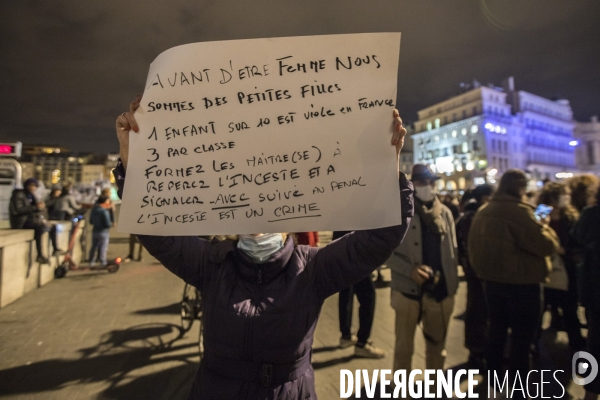 AVANT D'ETRE FEMME NOUS
SOMMES DES PETITES FILLES
1 ENFANT SUR 10 EST VIOLE EN FRANCE
3 PAR CLASSE
FORMEZ LES MAITRE(SE) A
REPEREZ L'INCESTE ET A
SIGNALER AVEC SUIVI AU PENAL
L'INCESTE EST UN CRIME
DIVERGENCE IMAGES